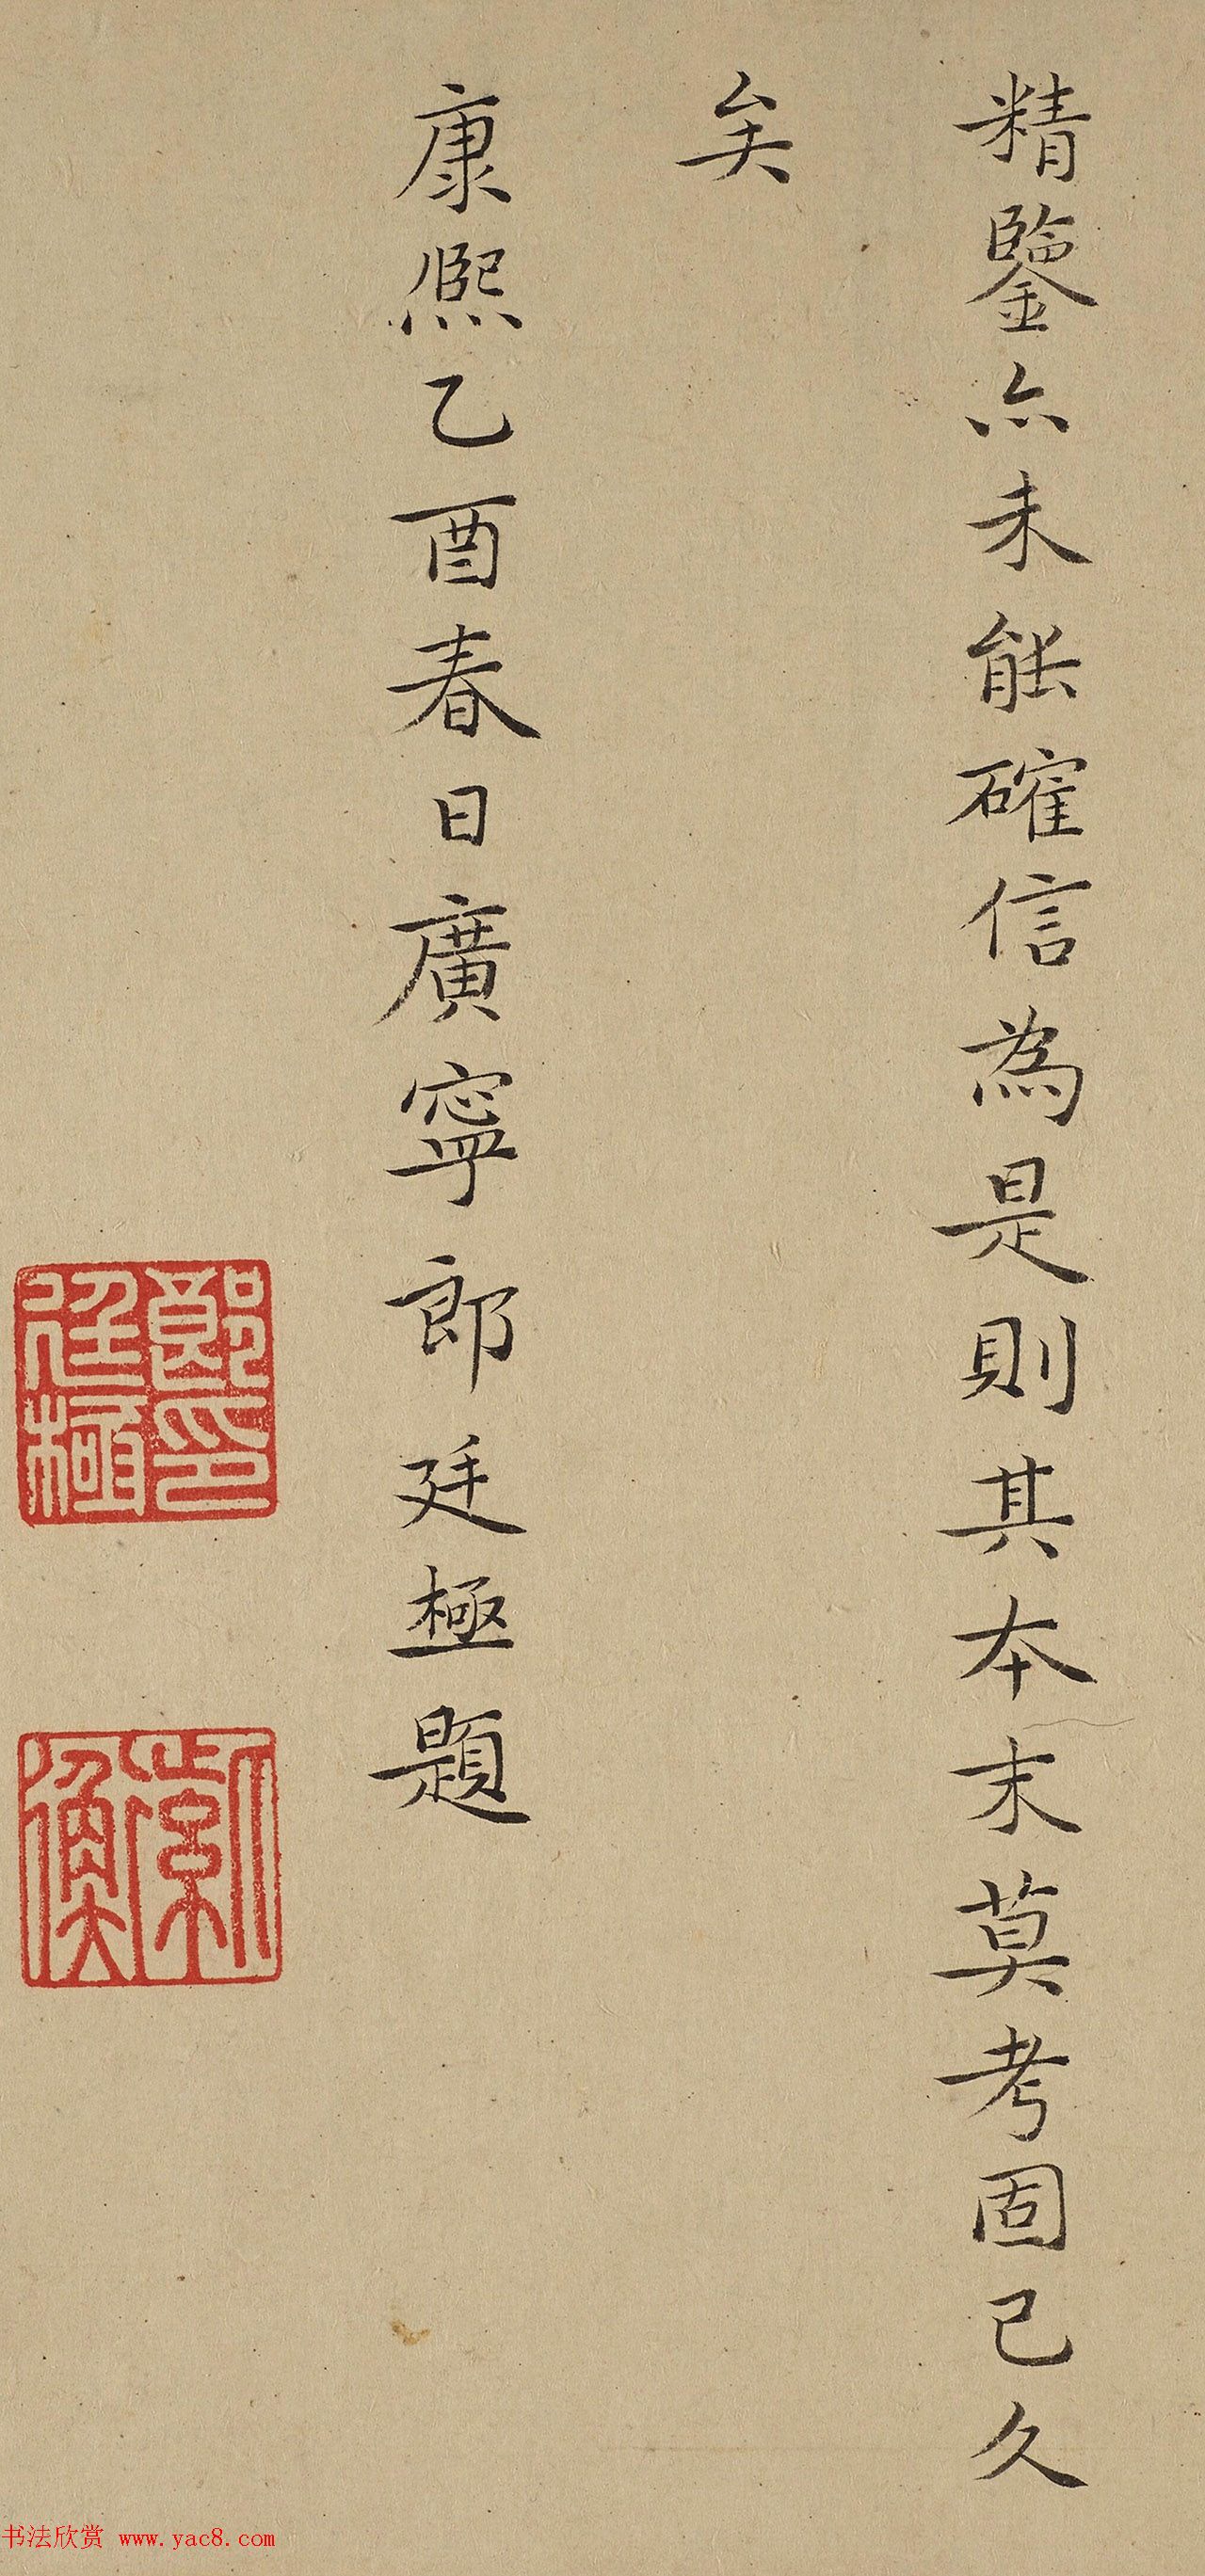 精鑒亦未能確信為是則其本末莫考固已久
矣
康熙乙酉春日廣寧郎廷極題
郎印廷極
紫衡
书法欣赏 www.yac8.com